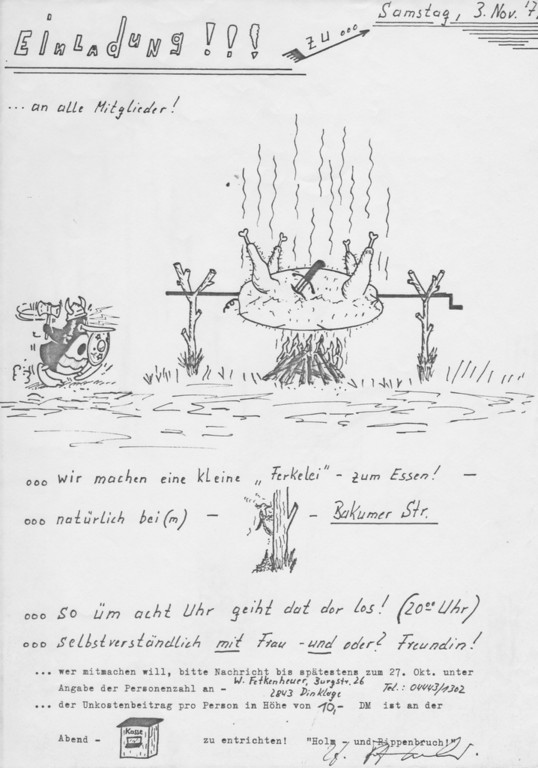 Einladung!!! zu ...
Samstag, 3. Nov. '7
... an alle Mitglieder!
ooo wir machen eine kleine „Ferkelei“ - zum Essen! -
ooo natürlich bei(m) - - Bakumer Str.
ooo so üm acht Uhr geiht dat dor los! (20°° Uhr)
ooo selbstverständlich mit Frau - und oder? Freundin!
... wer mitmachen will, bitte Nachricht bis spätestens zum 27. Okt. unter
Angabe der Personenzahl an - W. Fetkenheuer, Burgstr. 26 Tel.: 04443/1302
2843 Dinklage
... der Unkostenbeitrag pro Person in Höhe von 10,- DM ist an der
Abend - Kasse zu entrichten! "Holm - und Rippenbruch!"